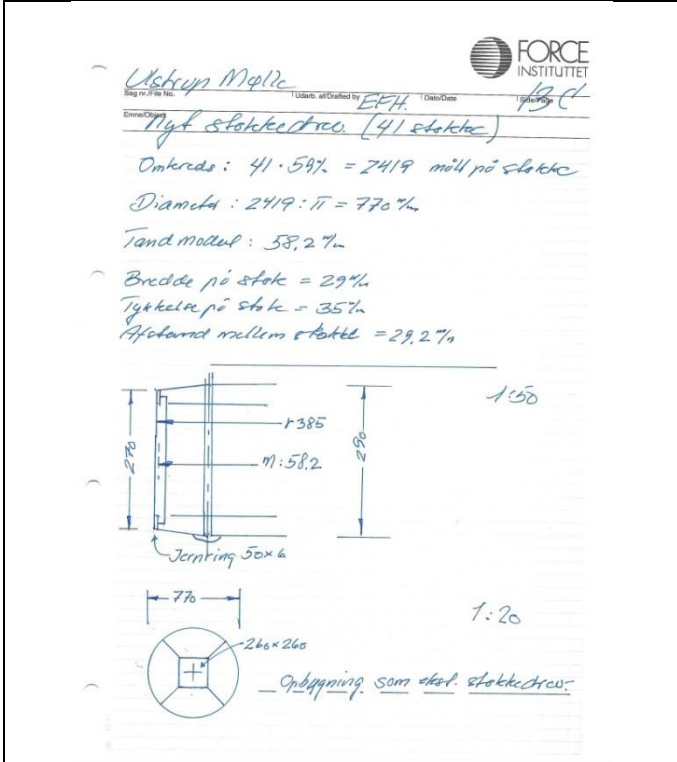 FORCE
INSTITUTTET
Ulstrup Mølle
Sag nr./File No.
Udarb. af/Drafted by
EFH.
Dato/Date
Side/Page
Emne/Object
Nyt stokkedrev. (41 stokke)
Omkreds: 41 · 59 m/m = 2419 målt på stokke
Diameter : 2419 : π = 770 m/m
Tandmodul : 58,2 m/m
Bredde på stok = 29 m/m
Tykkelse på stok = 35 m/m
Afstand mellem stokke = 29,2 m/m
1:50
r 385
270
290
m:58,2
Jernring 50x6
770
1:20
260x260
Opbygning som eksst. stokkedrev.